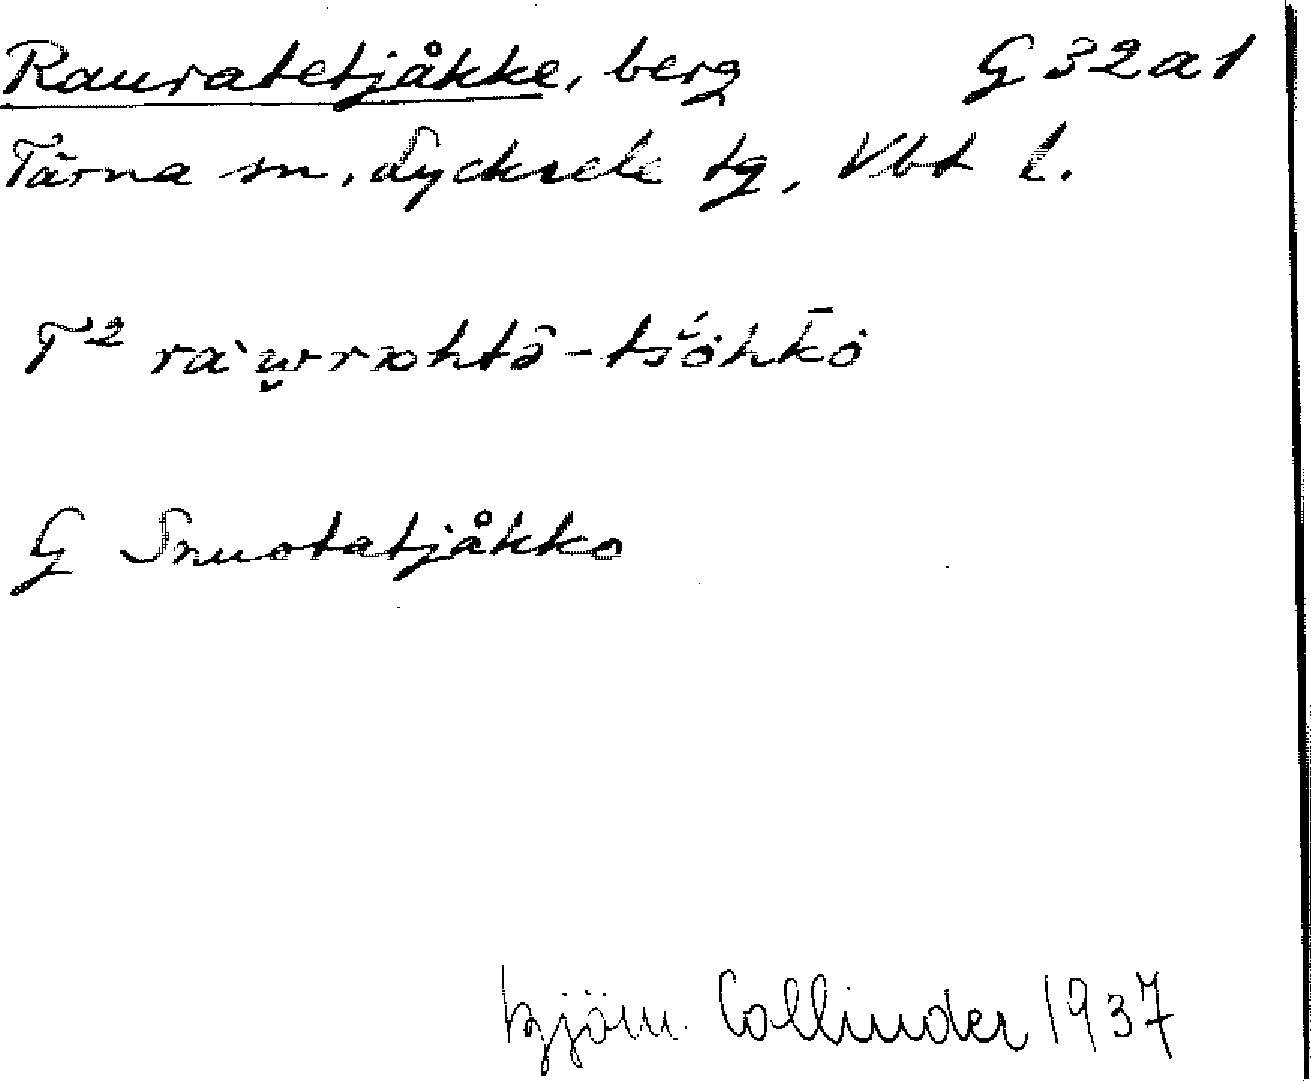 Rauratetjåkke, berg G 32 a 1
Tärna sn, Lycksele tg, Vbt l.
T² ra`w̭rrɔhtə̑ - tśŏ́hk̄ȯ
G Snuotatjåkko
Björn Collinder 1937